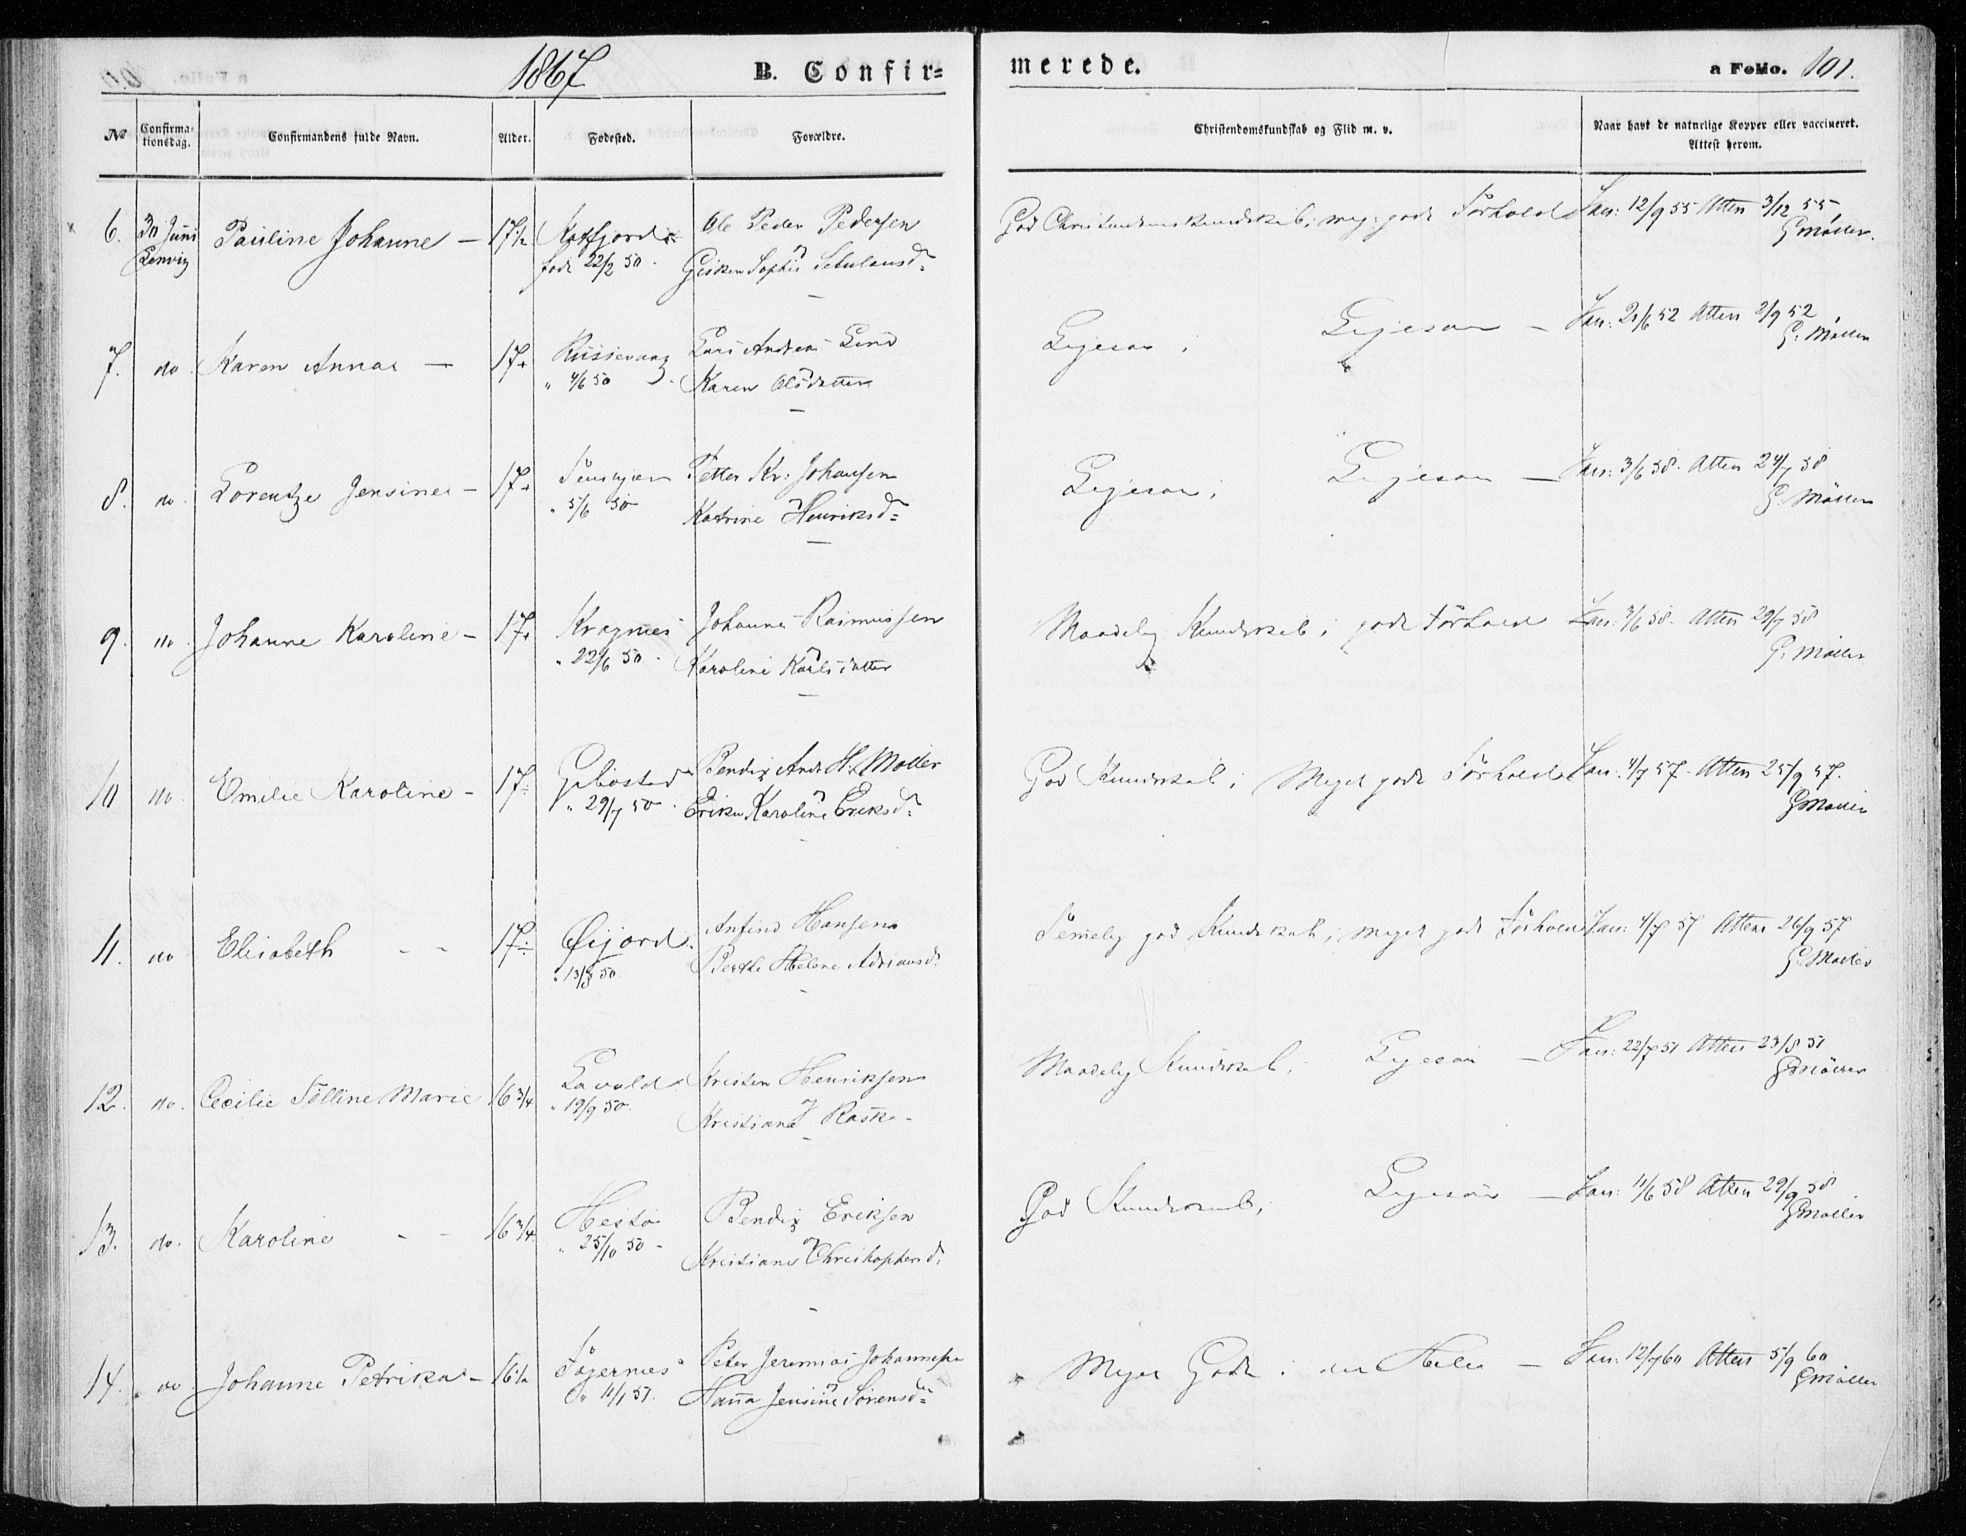 1867 B. Confir=
merede. a Folio. 101.
№ Confirma-tionsdag. Confirmandens fulde Navn. Alder. Fødested. Forældre. Christendomskundskab og Flid m. v. Naar havt de naturlige Kopper eller vaccineret. Attest herom.
6. 30 Juni Pauline Johanne — 17½ Ole Peder Pedersen God Christendomskundskab; meg: godt Forhold Vac: 12/9 55 Attest 3/12 55
Lenvig født 22/2 50. Gjesken Sophie G Møller.
7. do. Karen Anna — 17. Lars Andreas Lind Ligesaa; Ligesaa — Vac: 21/6 52 Attest 2/9 52
" 4/6 50 Karen Olsdatter G. Møller
8. do. Lorentze Jensine — 17. Petter Kr: Johansen Ligesaa; Ligesaa — Vac: 3/6 58. Attest 24/7 58
" 5/6 50 Katrine Henriksd= G. Møller
9. do. Johanne Karoline — 17. Kragnes Johannes Rasmussen Maadelig Kundskab; godt Forhold Vac: 3/6 58. Attest 29/7 58
" 22/6 50. Karoline Karlsdatter G. Møller
10 do. Emilie Karoline — 17. Gibostad Bendix Andr H. Møller God Kundskab; Meget godt Forhold Vac: 4/7 57. Attest 25/9 57.
" 29/7 50. Erika Karoline Eriksd: G Møller
11. do Elisabeth - - 17. Øijord. Anfind Hansen Temelig god Kundskab; meget godt Forhold Vac: 4/7 57 Attest 26/9 57
" 13/8 50. Berthe Helene Adriansd: G. Møller
12. do. Cecilie Tolline Marie 16¾ Lavold Kristen Henriksen Maadelig Kundskab; Ligesaa — Vac: 22/7 51 Attest 23/8 51
" 19/9 50. Kristiane Rask. G Møller
13. do. Karoline - - 16¾ Hestø Bendix Eriksen God Kundskab; Ligesaa — Vac: 11/6 58 Attest 29/9 58
" 25/10 50 - Kristiane Christophersd: G Møller
14. do Johanna Petrika — 16½ Peter Jeremias Johannesen Meget Godt i det Hele — Vac: 12/7 60 Attest 5/9 60
" 11/1 51. Hanna Jensine Sørensd= G Møller